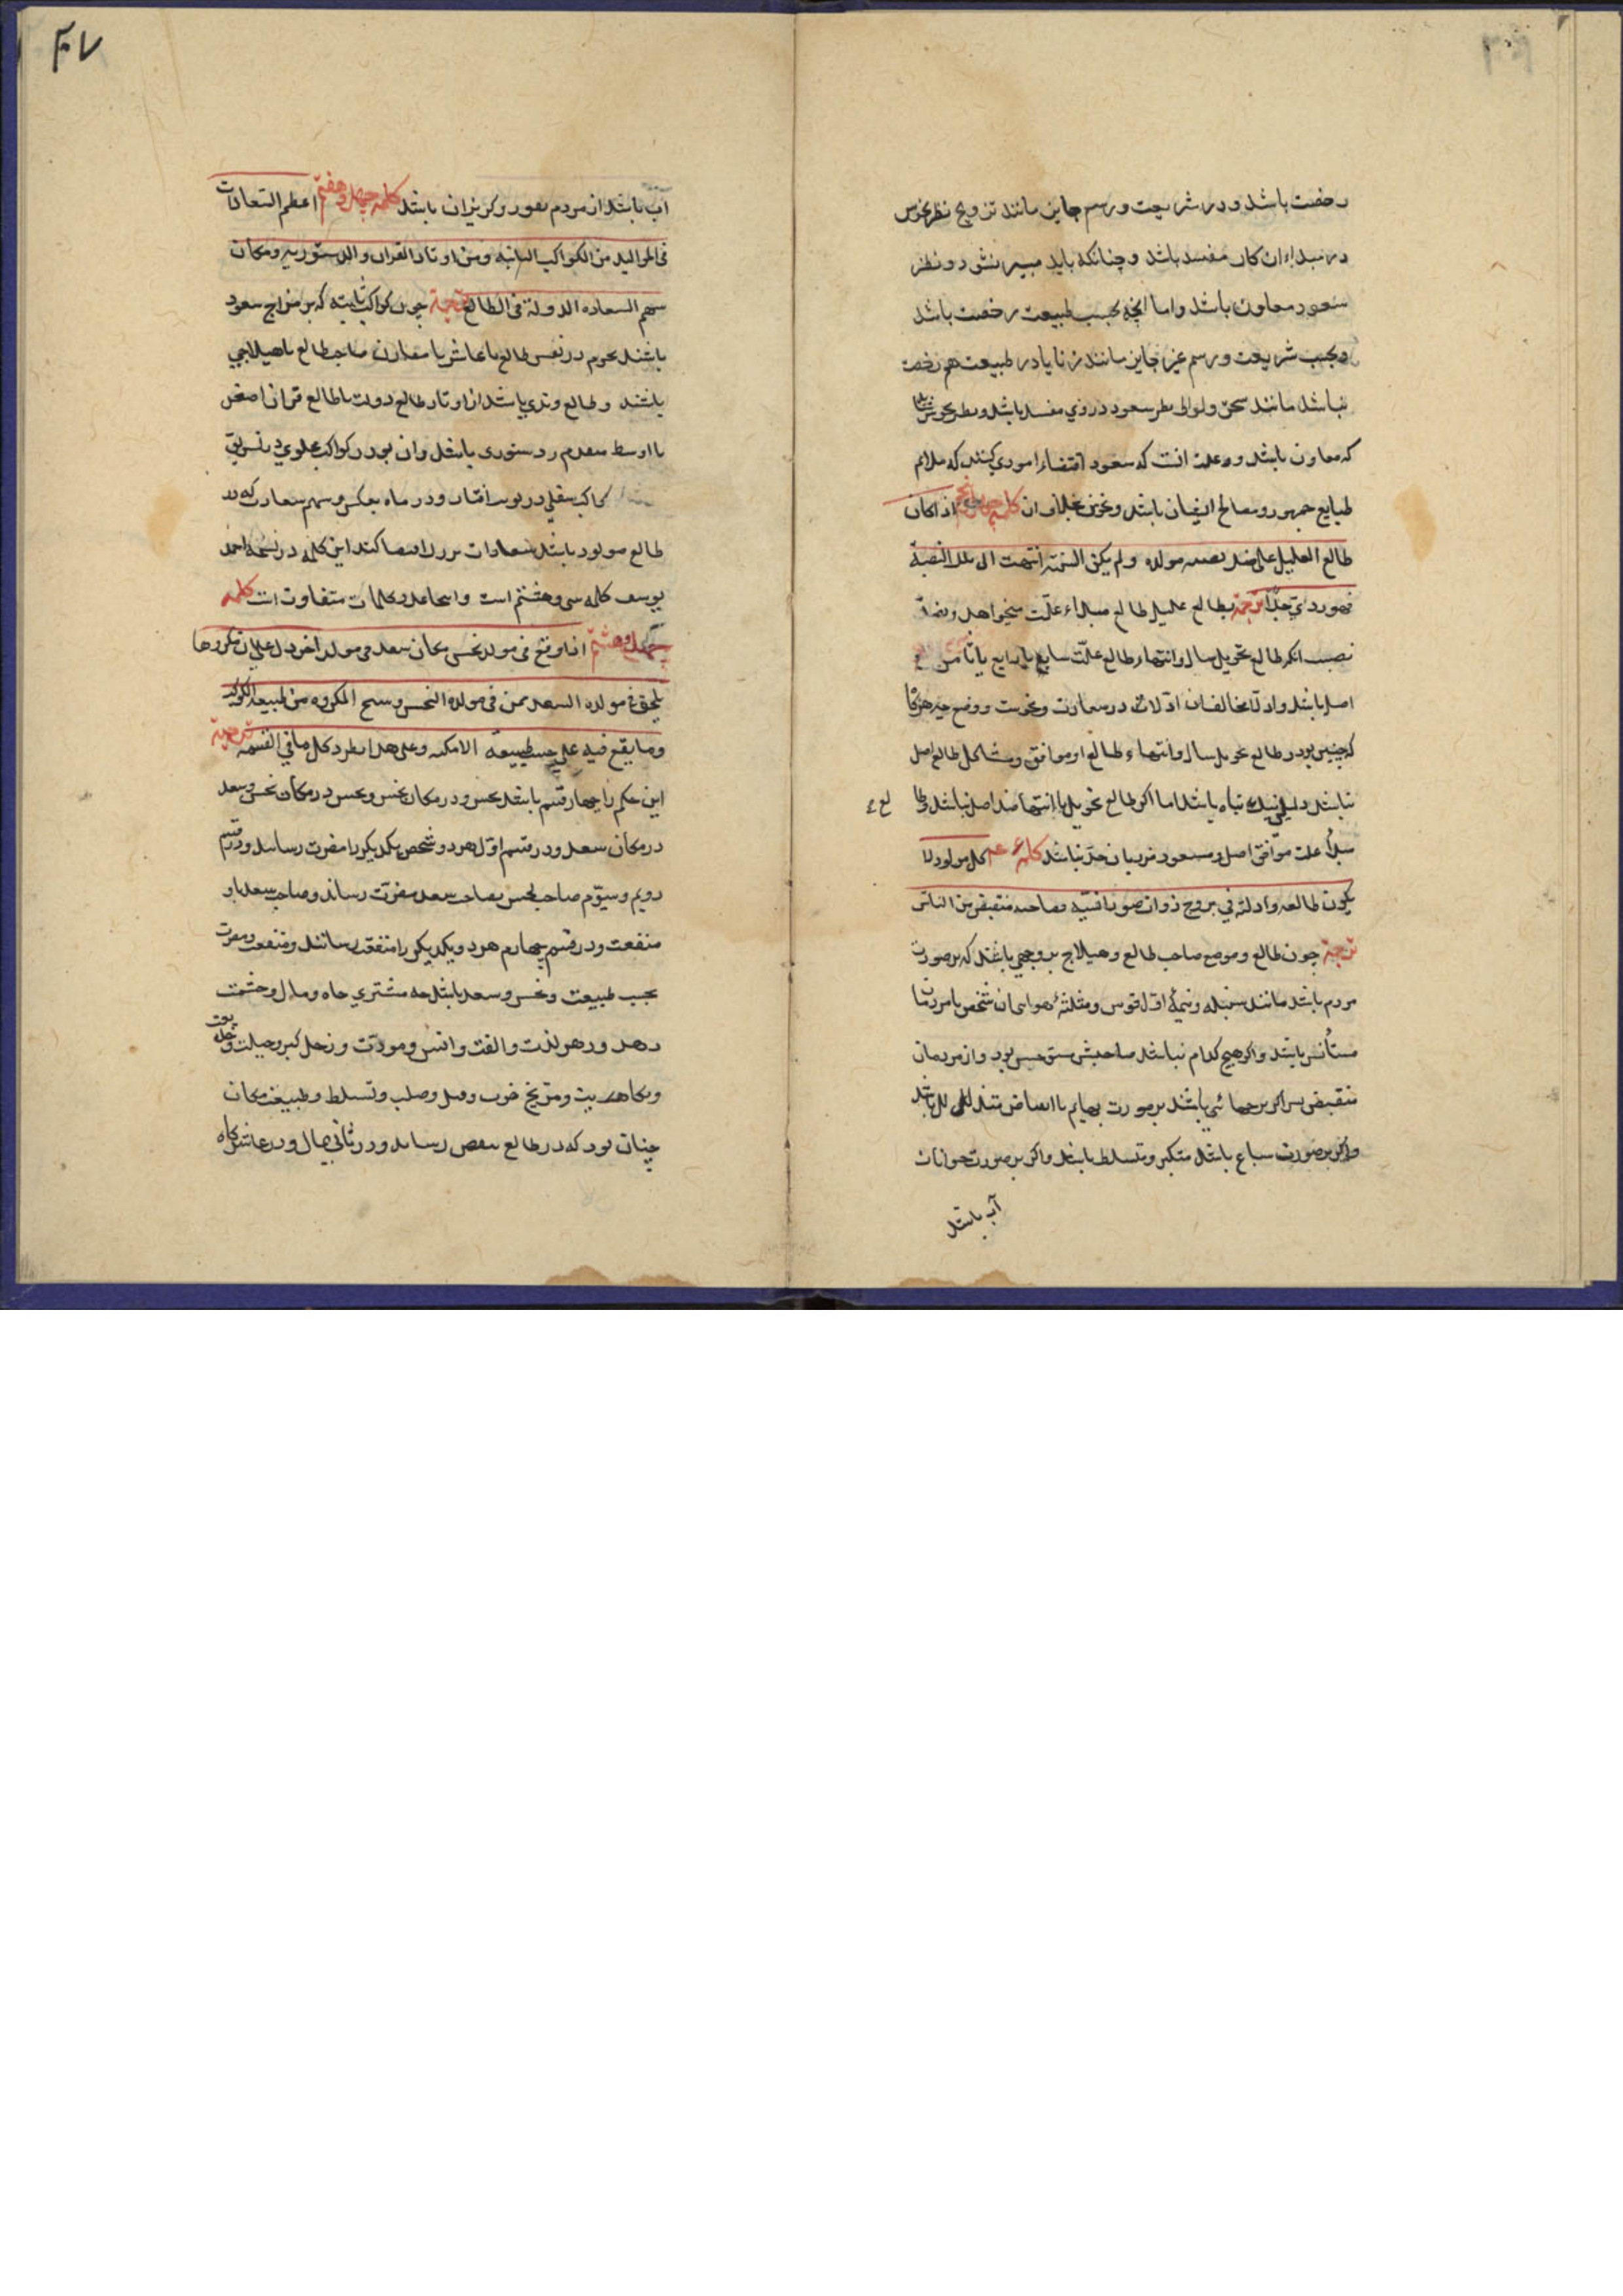 رخصت باشد و در شریعت و رسم جایز مانند تزویج نظر نحوس
در مبداء ان کار مفسد باشد و چنانکه باید میسر نشود و نظر
سعود معاون باشد و اما انچه بحسب طبیعت رخصت باشد
و بحسب شریعت و رسم غیر جایز مانند زنا یا در طبیعت هم رخصت
نباشد مانند سحق و لواط نظر سعود در وی مفسد باشد و نظر نحوس
که معاون باشد و علت انست که سعود اقتضاء اموری کنند که ملائم
طبایع جمهور و مصالح ایشان باشد و نحوس بخلاف ان کلمه چهل پنجم اذا کان
طالع العلیل علی ضد نصبه مولده و لم یکن السنه انتهت الی تلک النصبة
فهو ردی جدا ترجمة بطالع علیل طالع مبداء علت میخواهد و بضد
نصبت انکه طالع تحویل سال و انتها و طالع علت سابع یا رابع یا ثامن
اصل باشد و ادلا مخالف ان ادلا در سعادت و نحوست و وضع چه هرگا
که چنین بود و طالع تحویل سال و انتهاء طالع او موافق و مشاکل طالع اصل
نباشد دلیل تباه باشد اما اکر طالع تحویل یا انتها ضد اصل نباشد و طا
لع
مبدأ علت موافق اصل و مسعود زیان جد نباشد کلمه کل مولود لا
یکون طالعه و ادلته فی بروج ذوات صور انسیه فصاحبه منقبض من الناس
ترجمة چون طالع و موضع صاحب طالع و هیلاج بروجی باشند که بر صورت
مردم باشد مانند سنبله و نیمهٔ اول قوس و مثلثهٔ هوا ان شخص با مردمان
مستأنس باشد و اکر هیچ کدام نباشد صاحبش متوحش بود و از مردمان
منقبض پس اکر برجهائی باشند بر صورت بهایم با انقباض متذلل باشد
و اکر بر صورت سباع باشد متکبر و متسلط باشد و اکر بر صورت حیوانات
آب باشد
۴۰۷
آب باشد از مردم نفور و کریزان باشد کلمه چهل و هفتم اعظم السعادات
فی الموالید من الکواکب الثابته و من اوتاد القران و الدستوریه و مکان
سهم السعاده الدولة فی الطالع ترجمة چون کواکب ثابته که بر مزاج سعود
باشند بحرم در نفس طالع یا عاشر یا مقارن صاحب طالع یا هیلاجی
باشند و طالع وتدی باشد از اوتاد طالع دولت یا طالع قران اصغر
یا اوسط مقدم و دستوری باشد و ان بودن کواکب علوی در تشریق
کواکب سفلی در بوبت افتاب و در ماه بعکس و سهم سعادت که در
طالع مولود باشد سعادات بزرک اقتضا کند این کلمه در نسخه احمد
یوسف کلمه سی و هشتم است و اینجا عدد کلمات متفاوت است کلمه
چهل و هشتم اذا وقع فی مولد نحس مکان سعد فی مولد اخر دل علی ان مکروها
یلحق فی مولده السعد ممن فی مولده النحس و سنح المکروه من طبیعة الکوکب
و ما یقع فیه علی حسب طبیعة الامکنه و علی هذا یطرد کل ما فی القسمه ترجمة
این حکم را چهار قسم باشد نحس در مکان نحس و نحس در مکان نحس و سعد
در مکان سعد و در قسم اول هر دو شخص یکدیکر را مضرت رسانند و در قسم
دویم و سیوم صاحب نحس بصاحب سعد مضرت رساند و صاحب سعد باو
منفعت و در قسم چهارم هر دو یکدیکر را منفعت رسانند و منفعت و مضرت
بحسب طبیعت و نحس و سعد باشد چه مشتری جاه و مال و حشمت
دهد و زهره لذت و الفت و انس و مودت و زحل کبر و حیلت و
و مریخ ضرب و قتل و صلب و تسلط و طبیعت مکان
چنان بود که در طالع بنفس رساند و در ثانی بمال و در عاشر بجاه